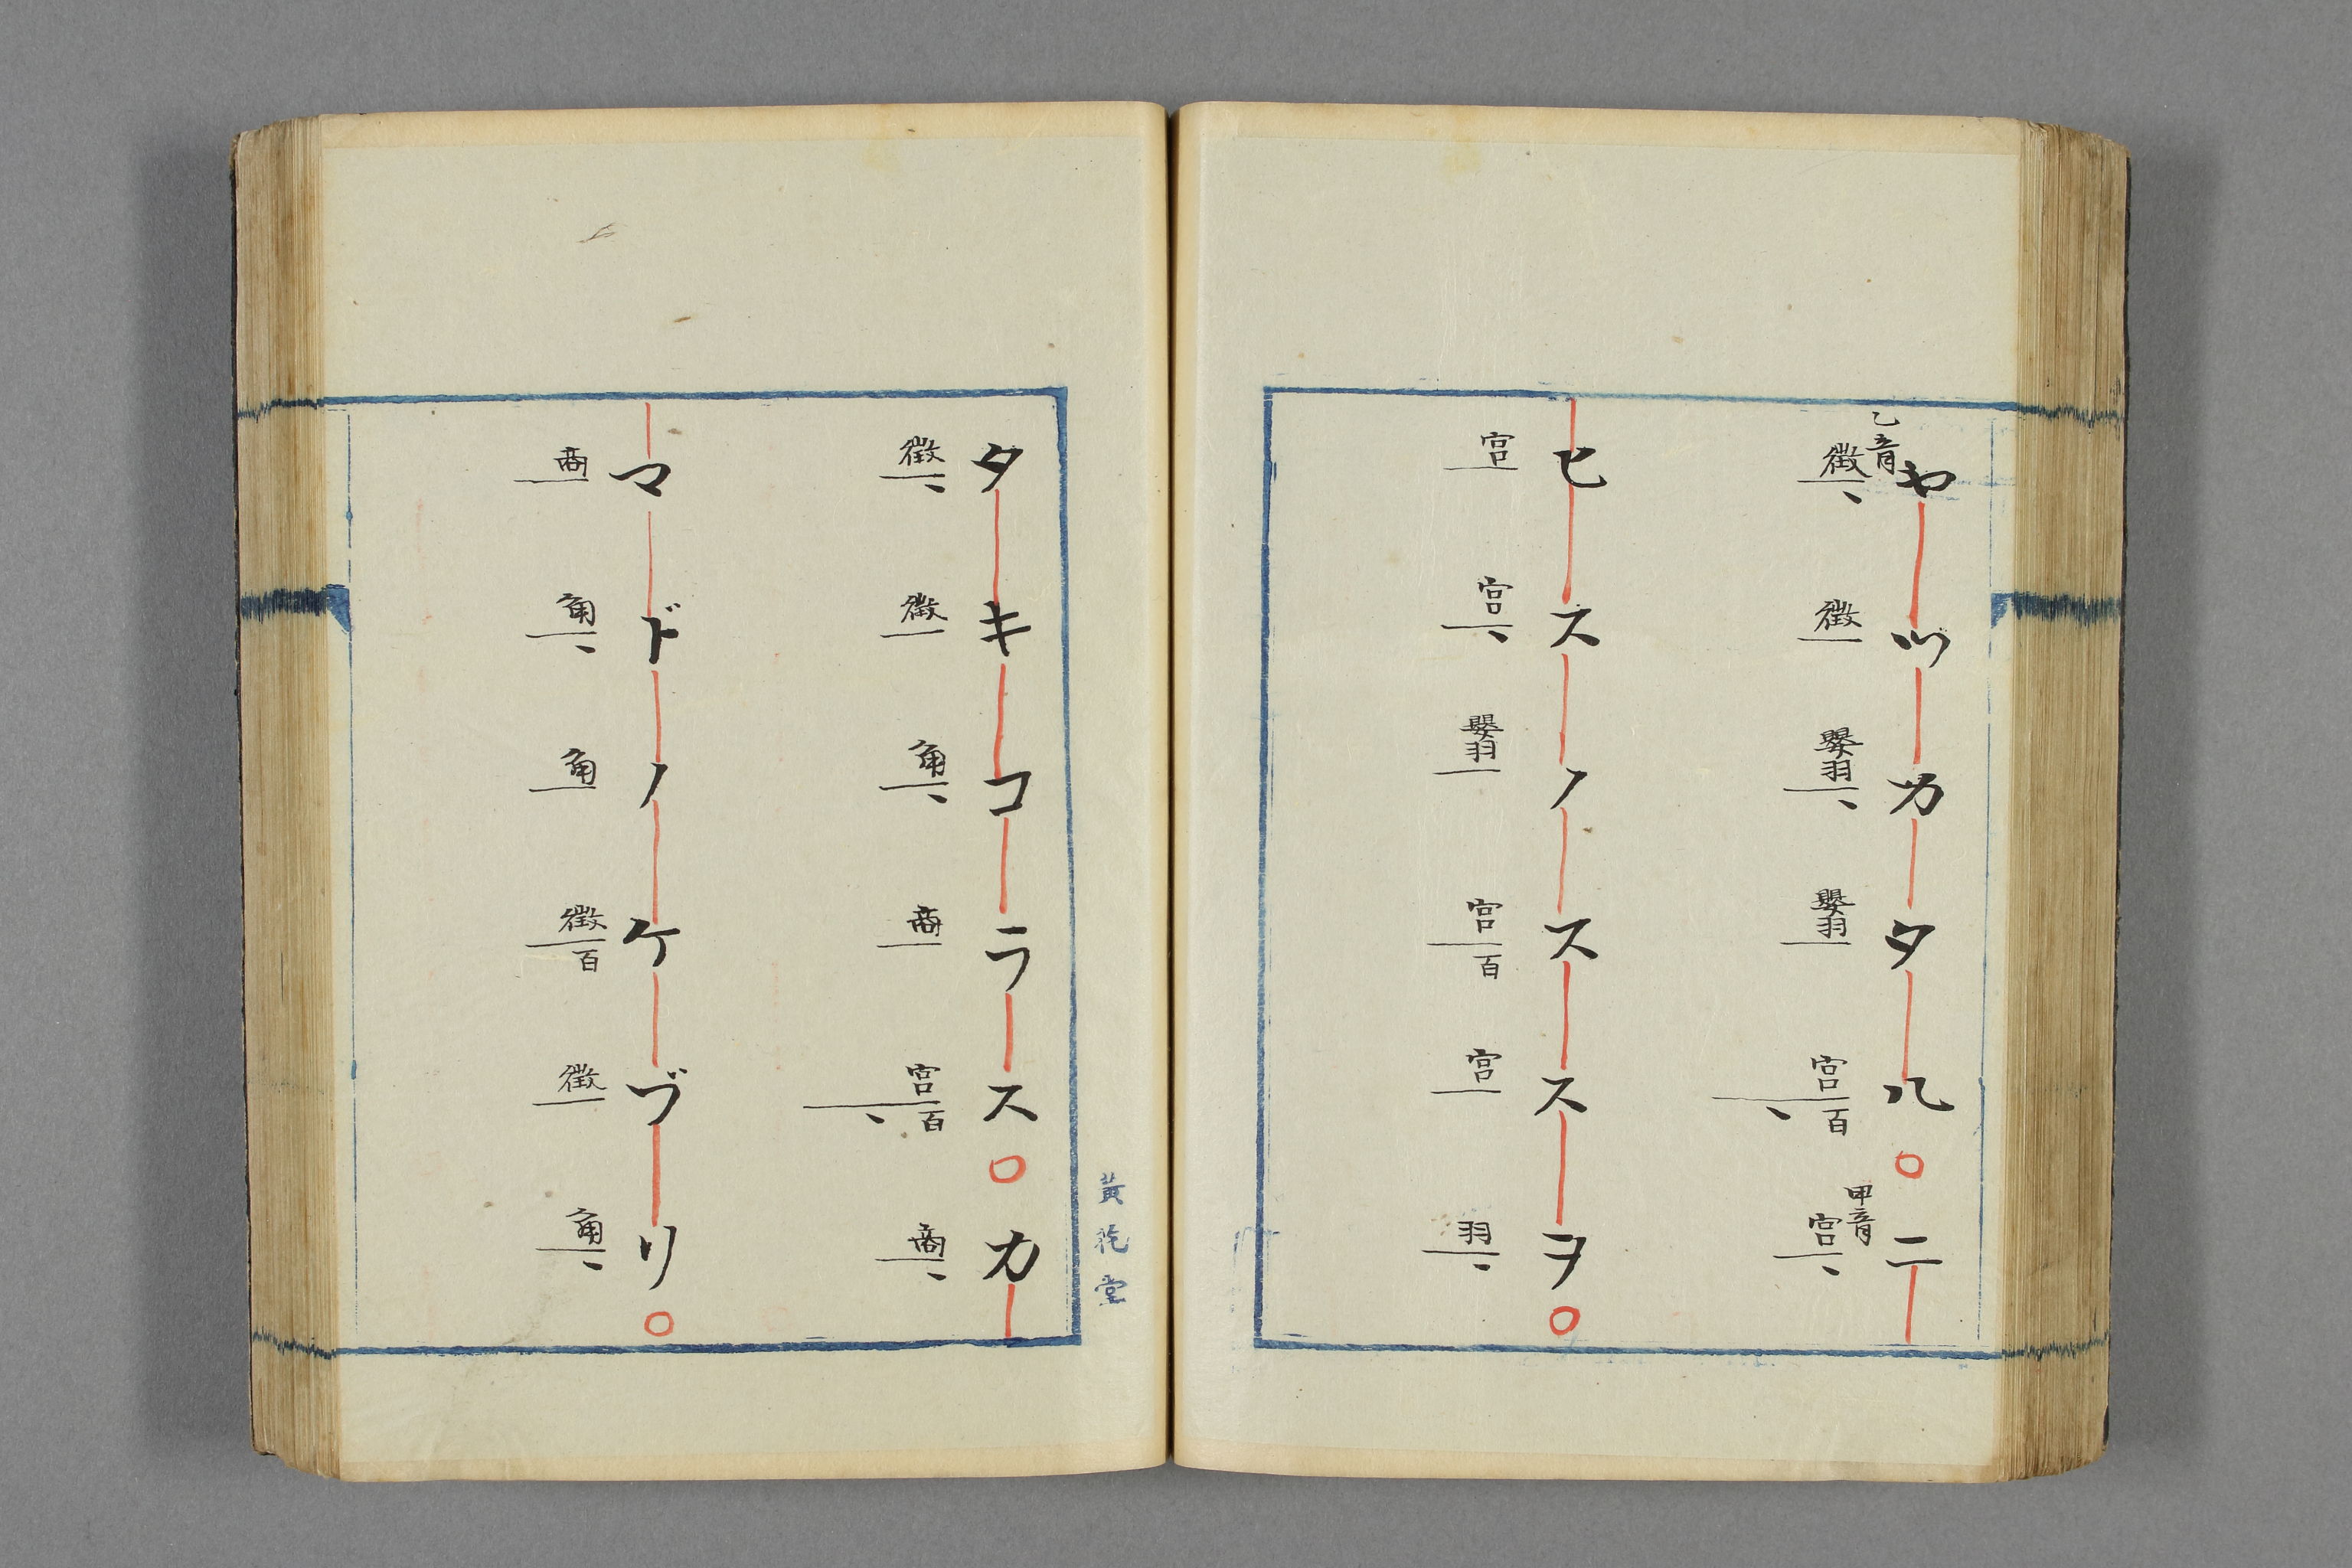 ヤツカタル○ニ
乙音
徴、
徴
嬰羽、
嬰羽
宮百、
甲音
宮、
ヒスノススヲ○
宮
宮、
嬰羽
宮百
宮
羽、
タキコラス○カ
徴、
徴
角、
商
宮百、
商、
マドノケヅリ○
商
角、
角
徴百
徴
角、